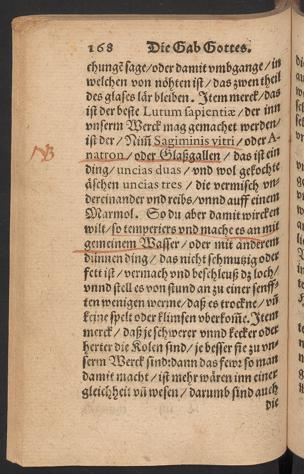 168 Die Gab Gottes.
chungẽ sage/oder damit vmbgange/in
welchen von nöhten ist/das zwen theil
des glases lär bleiben. Item merck/das
ist der beste Lutum sapientiæ/der inn
vnserm Werck mag gemachet werden/
ist der/Nim̃ Sagiminis vitri/oder A-
NB
natron/oder Glaßgallen/das ist ein
ding/uncias duas/vnd wol gekochte
äschen uncias tres/die vermisch vn-
dereinander vnd reibs/vnnd auff einem
Marmol. So du aber damit wircken
wilt/so temperiers vnd mache es an mit
gemeinem Wasser/oder mit anderem
dünnen ding/das nicht schmutzig oder
fett ist/vermach vnd beschleuß dz loch/
vnnd stell es von stund an zu einer senff-
ten wenigen werme/daß es trockne/vñ
keine spelt oder klimsen vberkom̃e. Item
merck/daß je schwerer vnnd kecker oder
herter die Kolen sind/je besser sie zu vn-
serm Werck sind: dann das fewr so man
damit macht/ist mehr wären inn einer
gleichheit vñ wesen/darumb sind auch
die